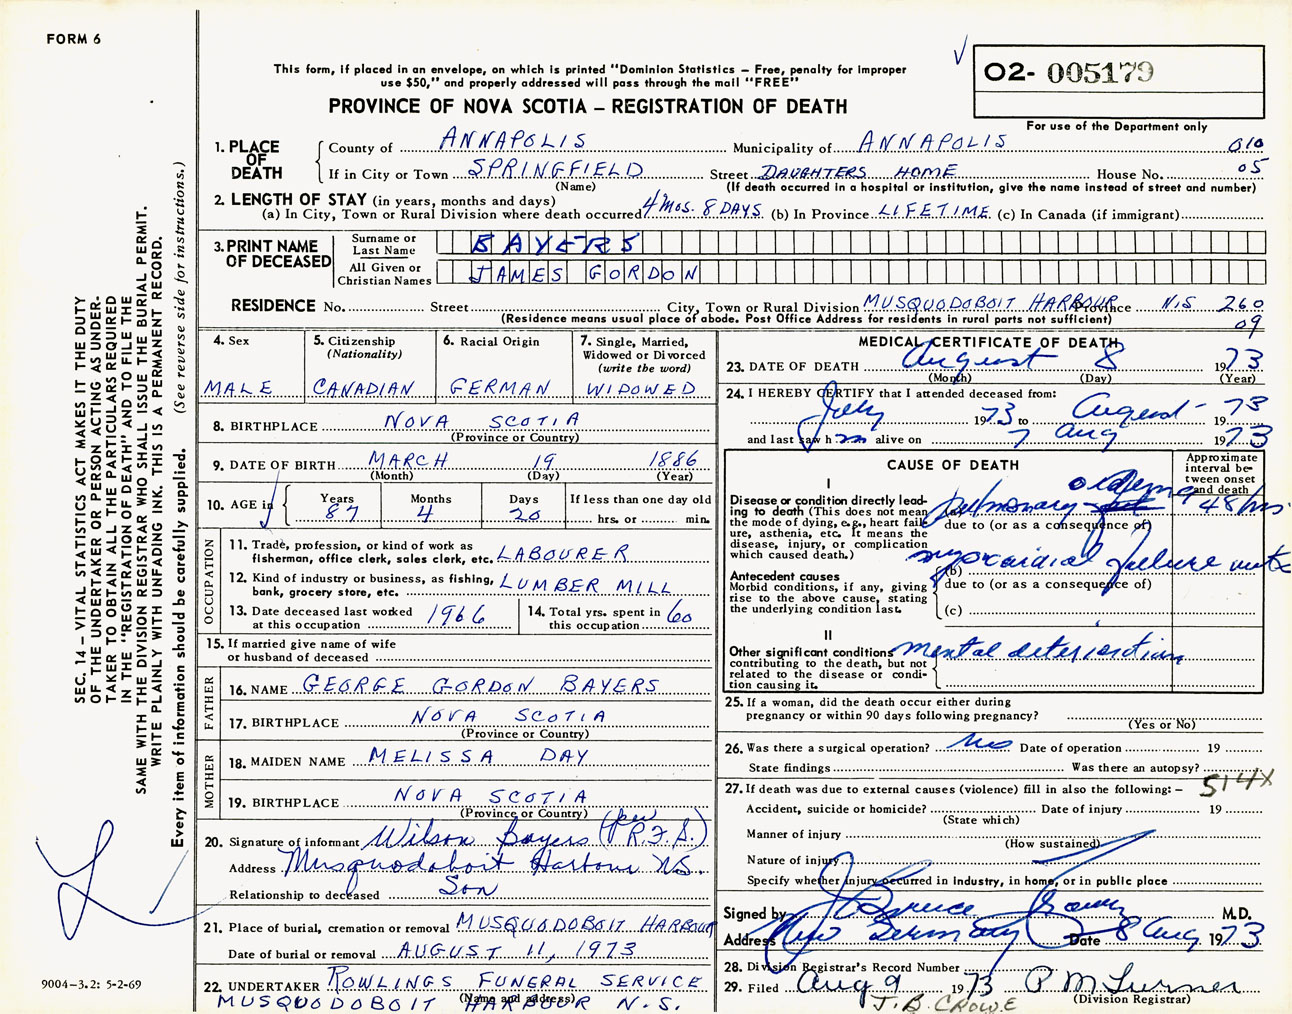 FORM 6
This form, if placed in an envelope, on which is printed "Dominion Statistics – Free, penalty for improper
use $50," and properly addressed will pass through the mail "FREE"
PROVINCE OF NOVA SCOTIA – REGISTRATION OF DEATH
02- 005179
For use of the Department only
1. PLACE OF DEATH
County of ANNAPOLIS Municipality of ANNAPOLIS 010
If in City or Town SPRINGFIELD Street DAUGHTERS HOME House No. 05
(Name) (If death occurred in a hospital or institution, give the name instead of street and number)
2. LENGTH OF STAY (in years, months and days)
(a) In City, Town or Rural Division where death occurred 4 MOS. 8 DAYS (b) In Province LIFETIME (c) In Canada (if immigrant)
3. PRINT NAME OF DECEASED
Surname or Last Name BAYERS
All Given or Christian Names JAMES GORDON
RESIDENCE No. Street City, Town or Rural Division MUSQUODOBOIT HARBOUR Province N.S 260
(Residence means usual place of abode. Post Office Address for residents in rural parts not sufficient) 09
4. Sex
MALE
5. Citizenship
(Nationality)
CANADIAN
6. Racial Origin
GERMAN
7. Single, Married,
Widowed or Divorced
(write the word)
WIDOWED
8. BIRTHPLACE NOVA SCOTIA
(Province or Country)
9. DATE OF BIRTH MARCH 19 1886
(Month) (Day) (Year)
10. AGE in
Years Months Days If less than one day old
87 4 20 hrs. or min.
OCCUPATION
11. Trade, profession, or kind of work as
fisherman, office clerk, sales clerk, etc. LABOURER
12. Kind of industry or business, as fishing,
bank, grocery store, etc. LUMBER MILL
13. Date deceased last worked
at this occupation 1966
14. Total yrs. spent in
this occupation 60
15. If married give name of wife
or husband of deceased
FATHER
16. NAME GEORGE GORDON BAYERS
17. BIRTHPLACE NOVA SCOTIA
(Province or Country)
MOTHER
18. MAIDEN NAME MELISSA DAY
19. BIRTHPLACE NOVA SCOTIA
(Province or Country)
20. Signature of informant Wilson Bayers (per R.F.S.)
Address Musquodoboit Harbour N.S.
Relationship to deceased Son
21. Place of burial, cremation or removal MUSQUODOBOIT HARBOUR
Date of burial or removal AUGUST 11, 1973
22. UNDERTAKER ROWLINGS FUNERAL SERVICE
(Name and address)
MUSQUODOBOIT HARBOUR N.S.
MEDICAL CERTIFICATE OF DEATH
23. DATE OF DEATH August 8 1973
(Month) (Day) (Year)
24. I HEREBY CERTIFY that I attended deceased from:
July 1973 to August 1973
and last saw him alive on 7 Aug 1973
CAUSE OF DEATH
Approximate
interval be-
tween onset
and death
I
Disease or condition directly lead-
ing to death (This does not mean
the mode of dying, e.g., heart fail-
ure, asthenia, etc. It means the
disease, injury, or complication
which caused death.)
(a) pulmonary oedema 48 hrs.
due to (or as a consequence of)
Antecedent causes
Morbid conditions, if any, giving
rise to the above cause, stating
the underlying condition last.
(b) myocardial failure
due to (or as a consequence of)
(c)
II
Other significant conditions
contributing to the death, but not
related to the disease or condi-
tion causing it.
mental deterioration
25. If a woman, did the death occur either during
pregnancy or within 90 days following pregnancy?
(Yes or No)
26. Was there a surgical operation? no Date of operation 19
State findings Was there an autopsy?
514X
27. If death was due to external causes (violence) fill in also the following: –
Accident, suicide or homicide? Date of injury 19
(State which)
Manner of injury
(How sustained)
Nature of injury
Specify whether injury occurred in industry, in home, or in public place
Signed by J. Bruce M.D.
Address New Germany Date 8 Aug 1973
28. Division Registrar's Record Number
29. Filed Aug 9 1973 P M Turner
(Division Registrar)
J. B. CROWE
SEC. 14 – VITAL STATISTICS ACT MAKES IT THE DUTY
OF THE UNDERTAKER OR PERSON ACTING AS UNDER-
TAKER TO OBTAIN ALL THE PARTICULARS REQUIRED
IN THE "REGISTRATION OF DEATH" AND TO FILE THE
SAME WITH THE DIVISION REGISTRAR WHO SHALL ISSUE THE BURIAL PERMIT.
WRITE PLAINLY WITH UNFADING INK. THIS IS A PERMANENT RECORD.
Every item of information should be carefully supplied. (See reverse side for instructions.)
9004–3.2: 5-2-69